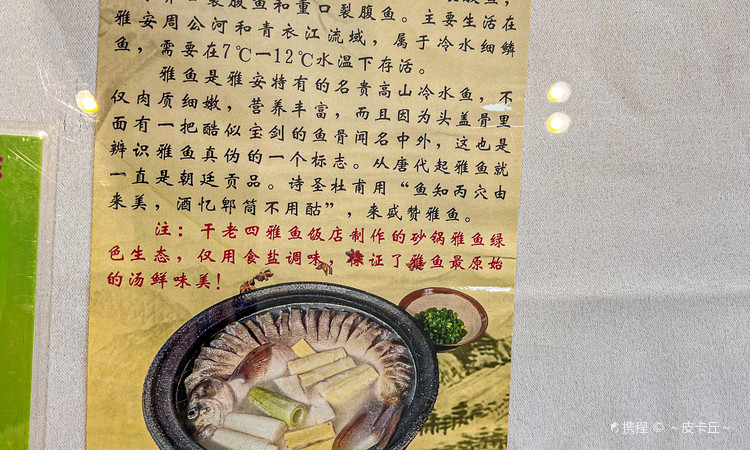 裂腹鱼和重口裂腹鱼。主要生活在
雅安周公河和青衣江流域，属于冷水细鳞
鱼，需要在7℃—12℃水温下存活。
雅鱼是雅安特有的名贵高山冷水鱼，不
仅肉质细嫩，营养丰富，而且因为头盖骨里
面有一把酷似宝剑的鱼骨闻名中外，这也是
辨识雅鱼真伪的一个标志。从唐代起雅鱼就
一直是朝廷贡品。诗圣杜甫用“鱼知丙穴由
来美，酒忆郫筒不用酤”，来盛赞雅鱼。
注：干老四雅鱼饭店制作的砂锅雅鱼绿
色生态，仅用食盐调味，保证了雅鱼最原始
的汤鲜味美！
携程 © ~皮卡丘~